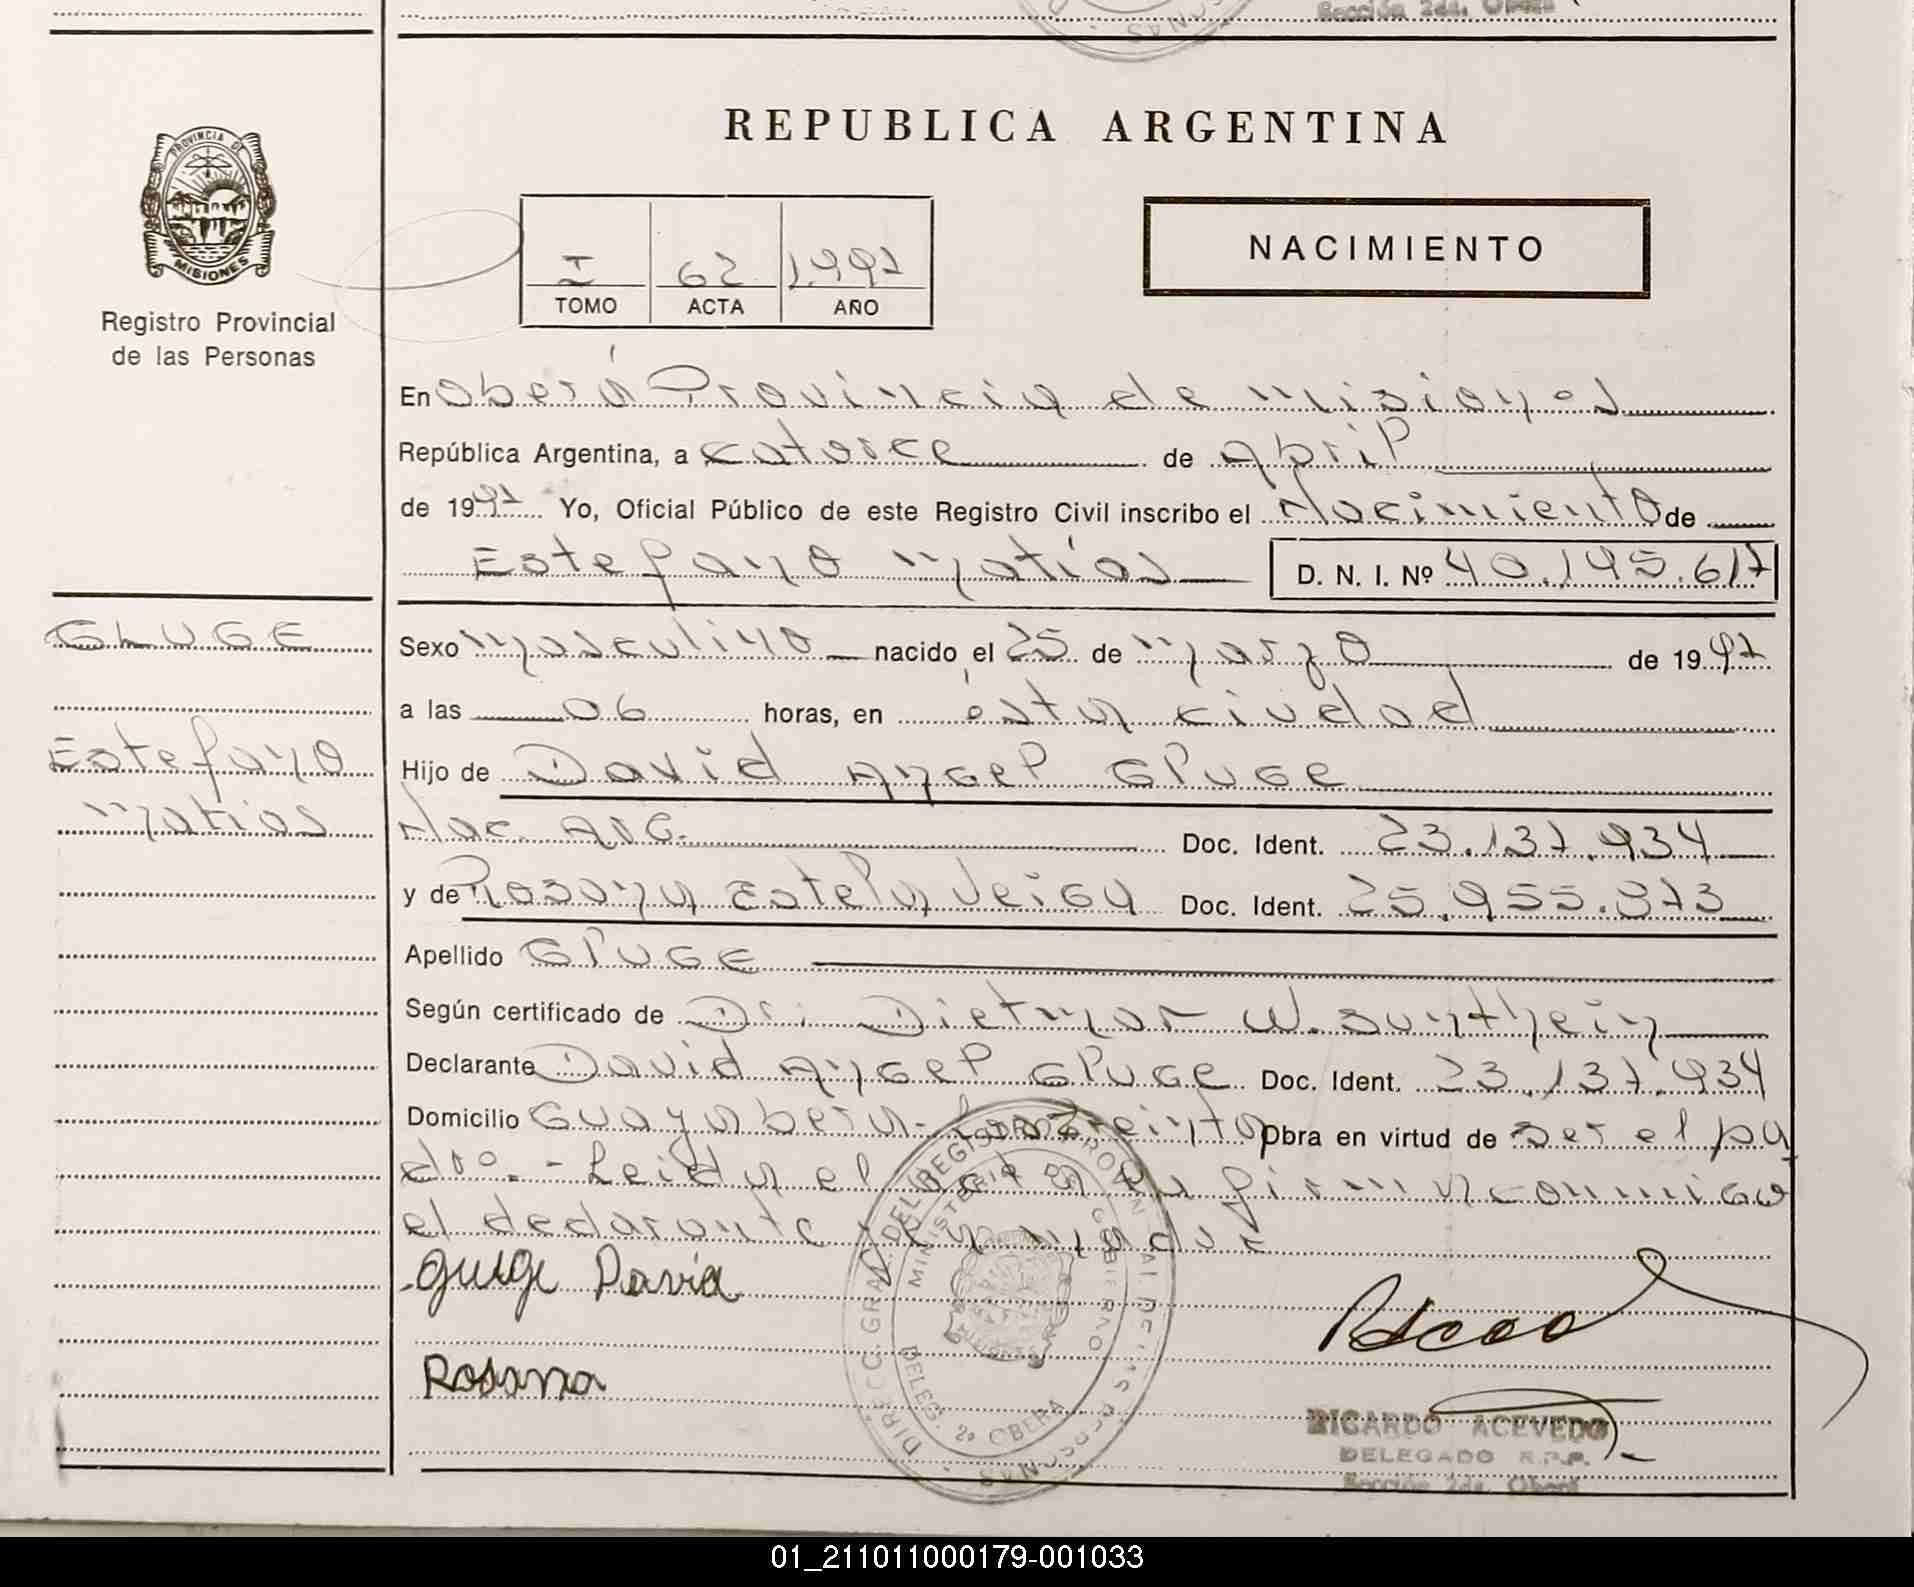 Sección 2da. Oberá
REPUBLICA ARGENTINA
PROVINCIA DE
MISIONES
Registro Provincial
de las Personas
I 62 1.997
TOMO ACTA AÑO
NACIMIENTO
En Oberá Provincia de Misiones
República Argentina, a catorce de abril
de 1997 Yo, Oficial Público de este Registro Civil inscribo el Nacimiento de
Estefano Matías D. N. I. Nº 40.195.617
GLUGE
Estefano
Matías
Sexo Masculino nacido el 25 de Marzo de 1997
a las 06 horas, en ésta ciudad
Hijo de David Angel GLUGE
Nac. ARG. Doc. Ident. 23.137.934
y de Rosana Estela Veiga Doc. Ident. 25.955.373
Apellido GLUGE
Según certificado de Dr: Dietmar W. Sunthein
Declarante David Angel GLUGE Doc. Ident. 23.137.934
Domicilio Guayabera Obra en virtud de ser el pa
dre.- Leida el acta la firman conmigo
el declarante y la madre
Gluge David
Rosana
DIRECC. GRAL. DEL REGISTRO PROVINCIAL DE LAS PERSONAS
MINISTERIO DE GOBIERNO
DELEG. 2a OBERA
RICARDO ACEVEDO
DELEGADO R.P.P.
Sección 2da. Oberá
01_211011000179-001033